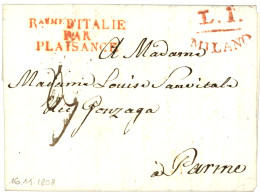 R.AUME D'ITALIE
PAR
PLAISANCE
L. I.
MILANO
A Madame
Madame Louise Sanvitale
née Gonzaga
à Parme
1808